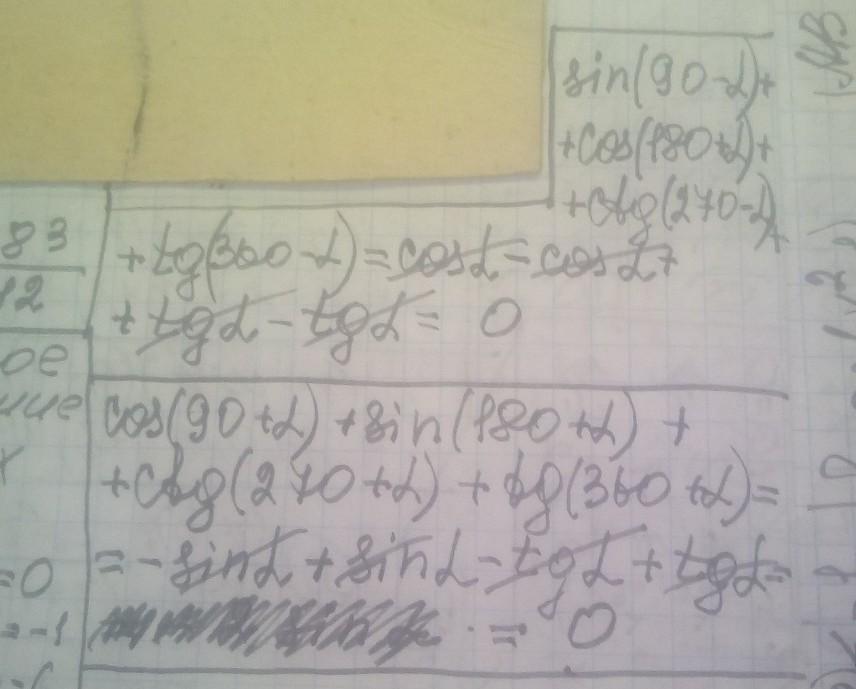 sin(90-α)+
+cos(180+α)+
+ctg(270-α)+
+tg(360-α)=cosα-cosα+
+tgα-tgα= 0
cos(90+α)+sin(180+α)+
+ctg(270+α)+tg(360+α)=
=-sinα+sinα-tgα+tgα=
= 0
83
12
ое
ние
=0
=-1